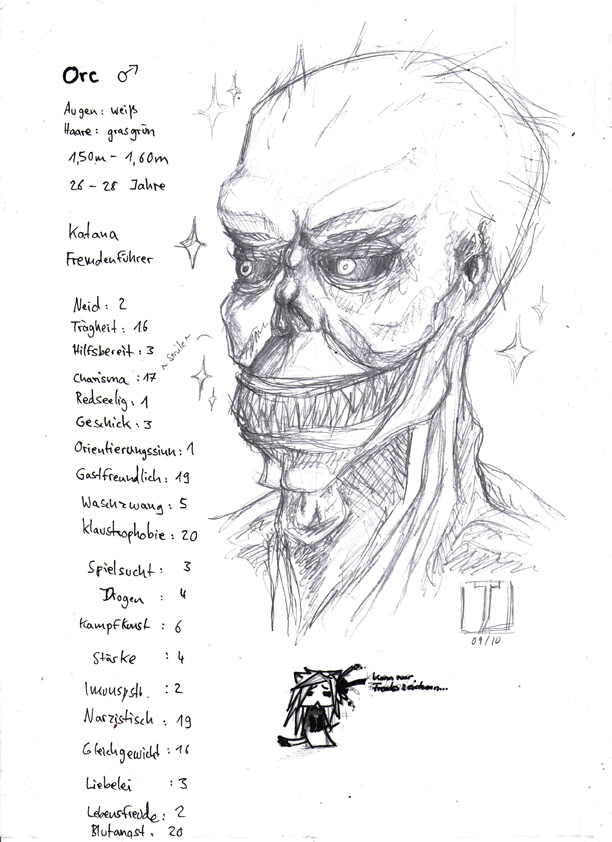 Orc ♂
Augen: weiß
Haare: grasgrün
1,50m - 1,60m
26 - 28 Jahre
Katana
Fremdenführer
Neid: 2
Trägheit: 16
Hilfsbereit: 3
Charisma: 17
Redseelig: 1
Geschick: 3
Orientierungssinn: 1
Gastfreundlich: 19
Waschzwang: 5
Klaustrophobie: 20
Spielsucht: 3
Drogen: 4
Kampfkunst: 6
Stärke: 4
: 2
Narzistisch: 19
Gleichgewicht: 16
Liebelei: 3
Lebensfreude: 2
Blutangst. 20
~Smile~
09/10
Kann nur
Freaks zeichnen...